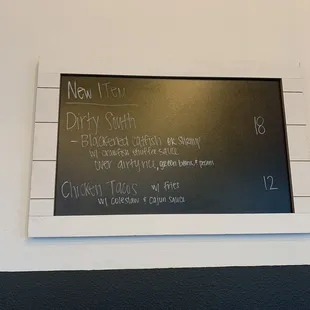 New ITem
Dirty South 18
- Blackened catfish or shrimp
w/ crawfish étouffée sauce
over dirty rice, green beans &
Chicken Tacos w/ fries 12
w/ coleslaw & cajun sauce